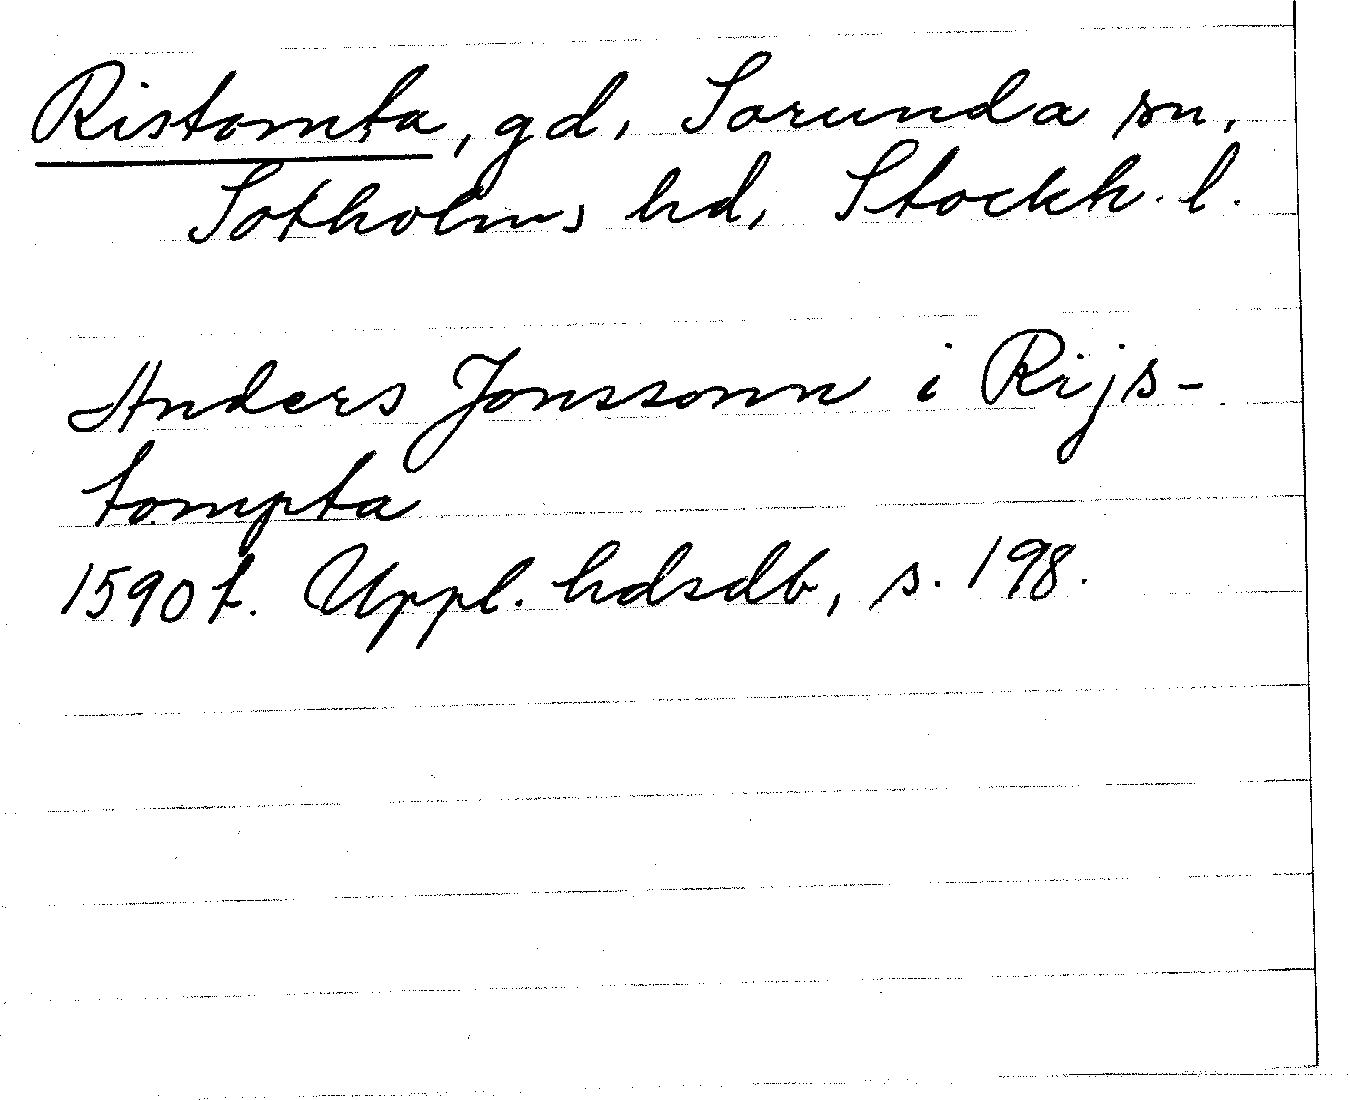 Ristomta, gd, Sorunda sn,
Sotholms hd, Stockh. l.
Anders Jonssonn i Rijs-
tompta
1590 t. Uppl. hdsdb, s. 198.